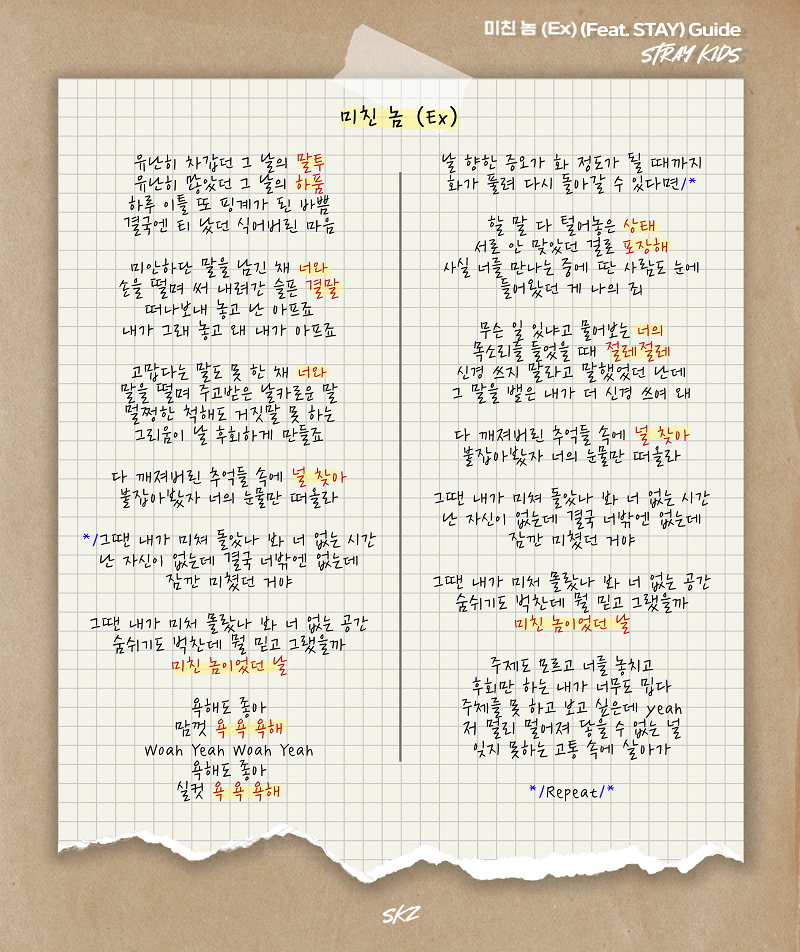 미친 놈 (Ex) (Feat. STAY) Guide
STRAY KIDS
미친 놈 (Ex)
유난히 차갑던 그 날의 말투
유난히 많았던 그 날의 하품
하루 이틀 또 핑계가 된 바쁨
결국엔 티 났던 식어버린 마음
미안하단 말을 남긴 채 너와
손을 떨며 써 내려간 슬픈 결말
떠나보내 놓고 난 아프죠
내가 그래 놓고 왜 내가 아프죠
고맙다는 말도 못 한 채 너와
말을 떨며 주고받은 날카로운 말
멀쩡한 척해도 거짓말 못 하는
그리움이 날 후회하게 만들죠
다 깨져버린 추억들 속에 널 찾아
붙잡아봤자 너의 눈물만 떠올라
*/그땐 내가 미쳐 돌았나 봐 너 없는 시간
난 자신이 없는데 결국 너밖엔 없는데
잠깐 미쳤던 거야
그땐 내가 미처 몰랐나 봐 너 없는 공간
숨쉬기도 벅찬데 뭘 믿고 그랬을까
미친 놈이었던 날
욕해도 좋아
맘껏 욕 욕 욕해
Woah Yeah Woah Yeah
욕해도 좋아
실컷 욕 욕 욕해
날 향한 증오가 화 정도가 될 때까지
화가 풀려 다시 돌아갈 수 있다면/*
할 말 다 털어놓은 상태
서로 안 맞았던 걸로 포장해
사실 너를 만나는 중에 딴 사람도 눈에
들어왔던 게 나의 죄
무슨 일 있냐고 물어보는 너의
목소리를 들었을 때 절레절레
신경 쓰지 말라고 말했었던 난데
그 말을 뱉은 내가 더 신경 쓰여 왜
다 깨져버린 추억들 속에 널 찾아
붙잡아봤자 너의 눈물만 떠올라
그땐 내가 미쳐 돌았나 봐 너 없는 시간
난 자신이 없는데 결국 너밖엔 없는데
잠깐 미쳤던 거야
그땐 내가 미처 몰랐나 봐 너 없는 공간
숨쉬기도 벅찬데 뭘 믿고 그랬을까
미친 놈이었던 날
주제도 모르고 너를 놓치고
후회만 하는 내가 너무도 밉다
주체를 못 하고 보고 싶은데 yeah
저 멀리 멀어져 닿을 수 없는 널
잊지 못하는 고통 속에 살아가
*/Repeat/*
SKZ